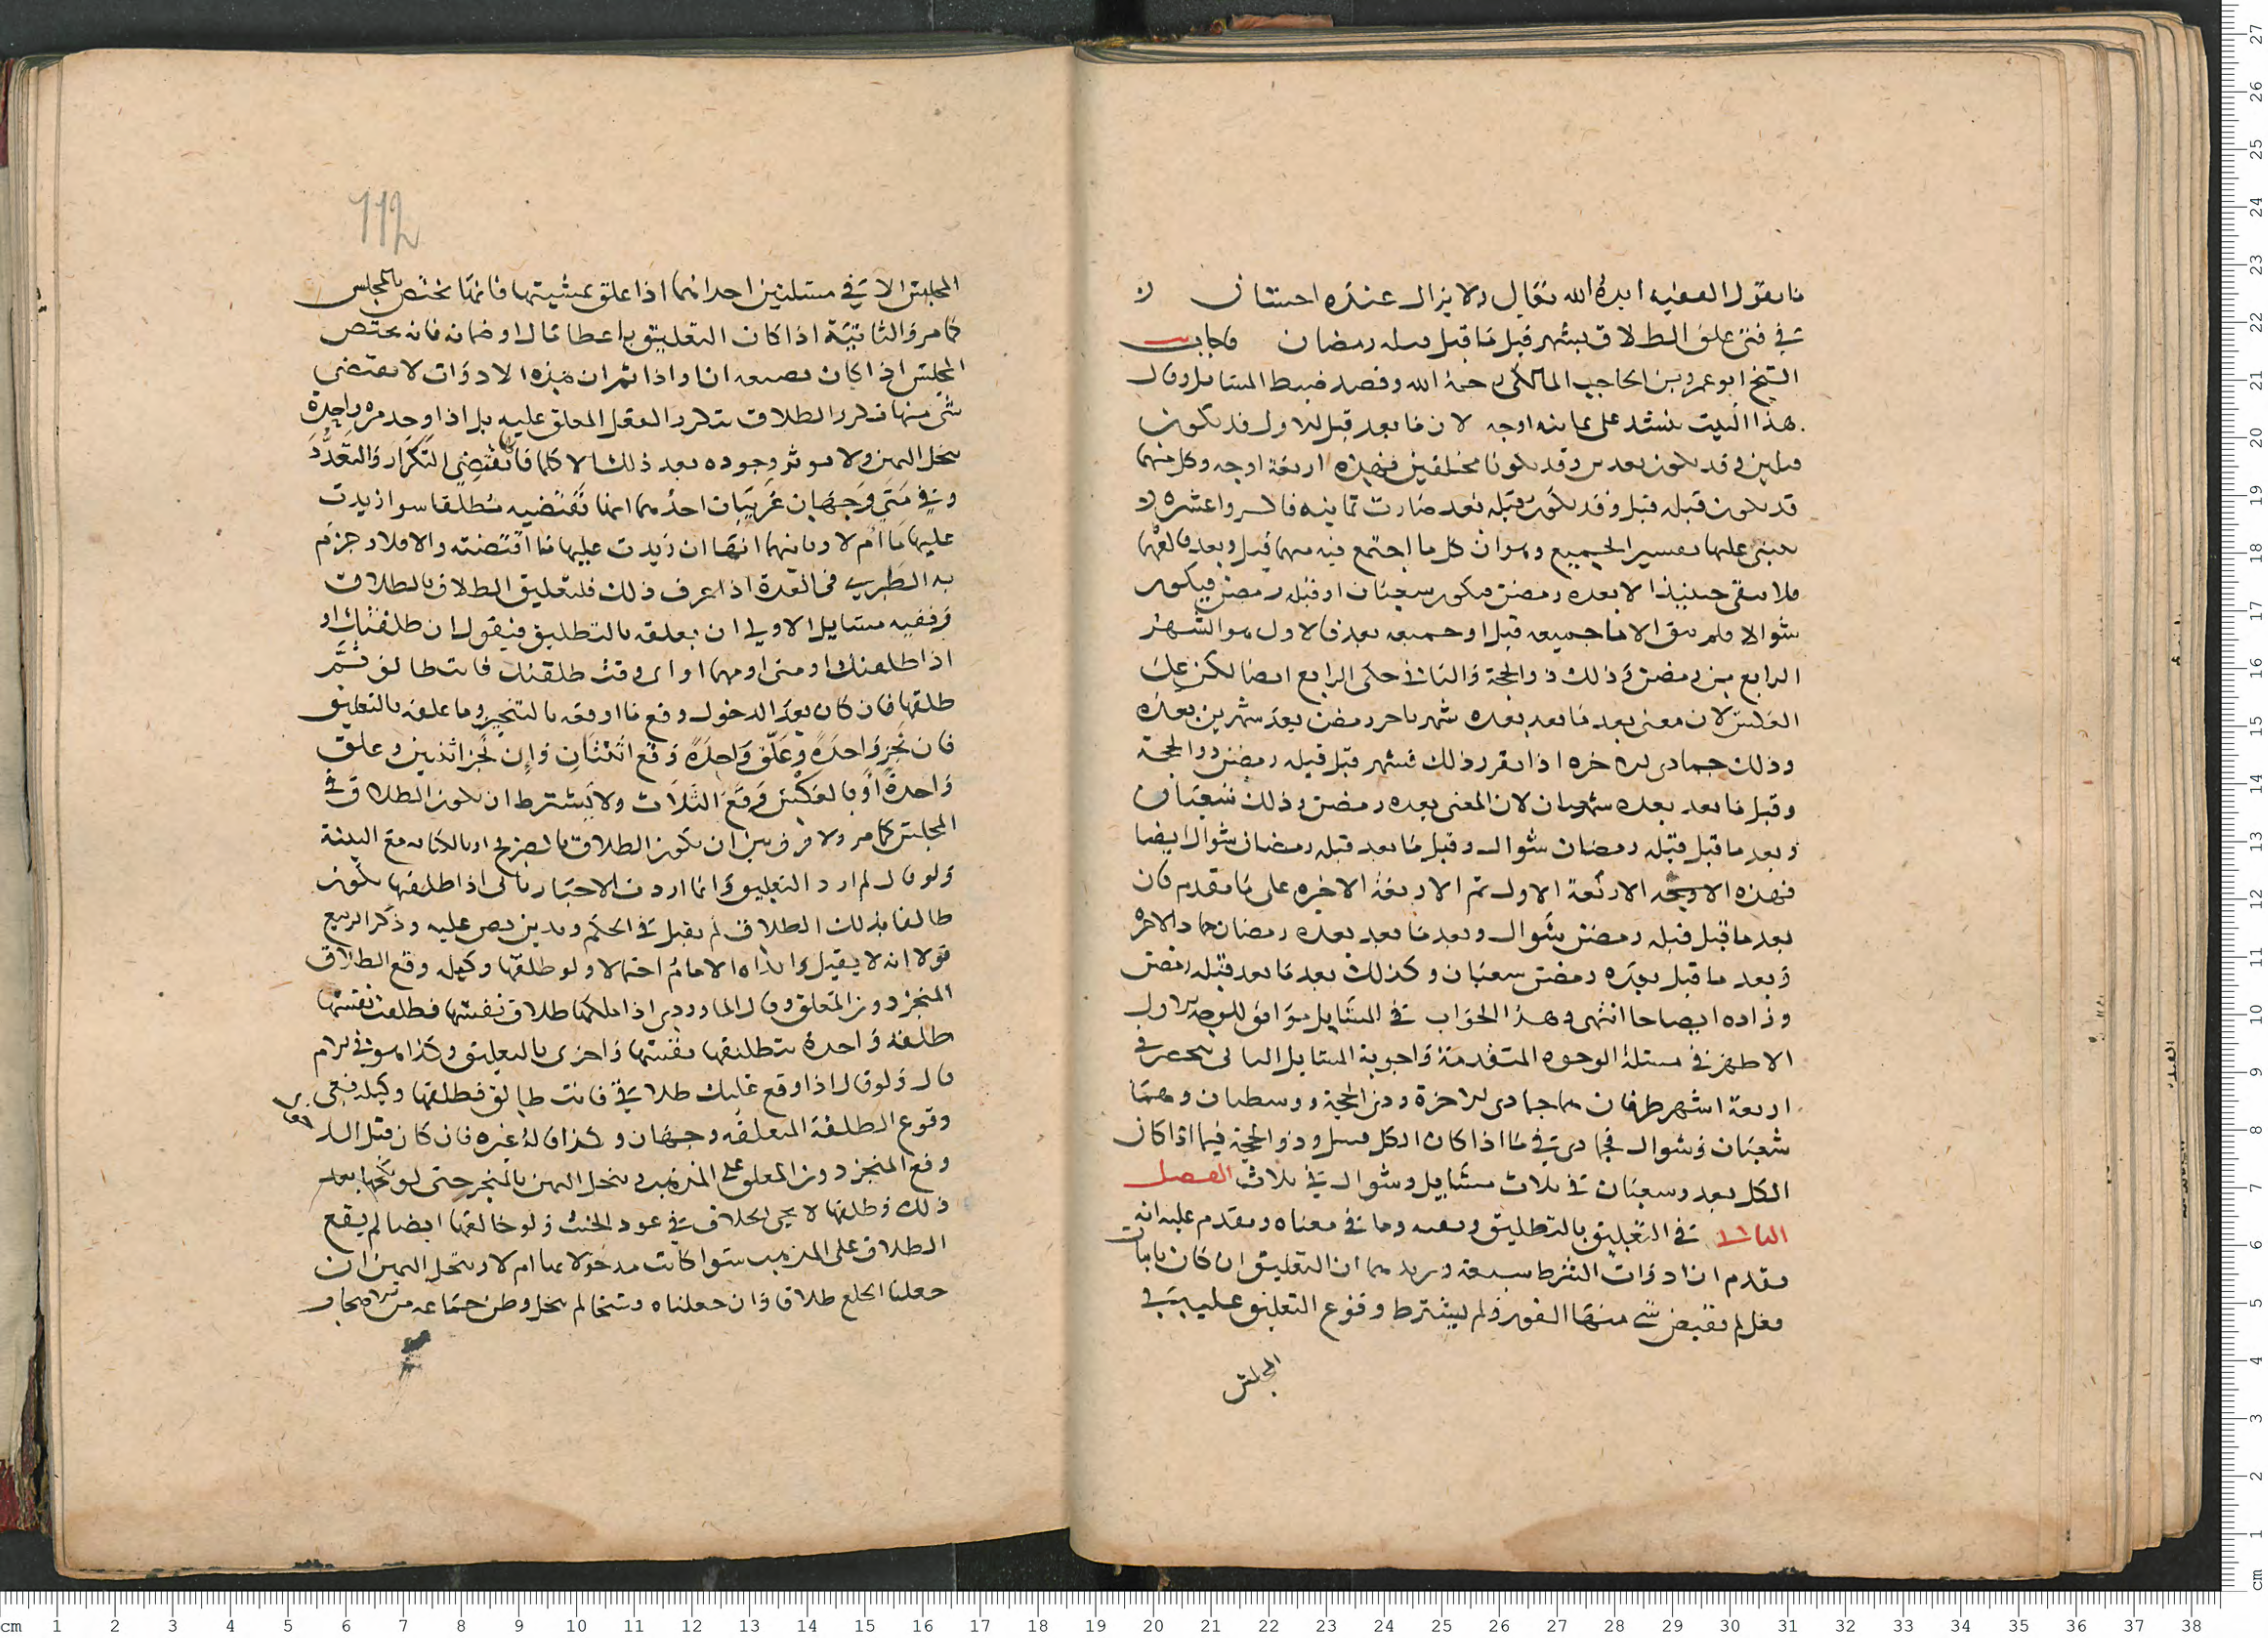 ما يقول الفقيه ايده الله تعالى ولا يزال عنده احسان
في فتى علق الطلاق بشهر قبل ما قبل قبله رمضان فاجاب
الشيخ ابو عمرو بن الحاجب المالكي رحمة الله وقصد ضبط المسايل وقال
هذا البيت ينشد على ثمانيه اوجه لان ما بعد قبل الاول قد يكون
قبلين وقد يكون بعدين وقد يكونا مختلفين فهذه اربعة اوجه وكل منها
قد يكون قبله قبل وقد يكون قبله بعد صارت ثمانيه
ينبنى عليها تفسير الجميع وهو ان كل ما اجتمع فيه منها قبل وبعد فالغهما
فلا يبقى حينيذ الا بعده رمضن فيكون شعبان او قبله رمضن فيكون
شوالا فلم يبق الا ما جميعه قبل او جميعه بعد فالاول هو الشهر
الرابع من رمضن وذلك ذو الحجة والثاني حكى الرابع ايضا لكن على
العكس لان معنى بعد ما بعد بعده شهر تاخر رمضن بعد شهرين بعده
وذلك جمادى الاخره اذا تقرر ذلك فشهر قبل قبله رمضن ذو الحجة
وقبل ما بعد بعده شعبان لان المعنى بعده رمضن وذلك شعبان
وبعد ما قبل قبله رمضان شوال وقبل ما بعد قبله رمضان شوال ايضا
فهذه الاوجه الاربعة الاول ثم الاربعة الاخره على ما تقدم فان
بعد ما قبل قبله رمضن شوال وبعد ما بعد بعده رمضان جماد الاخره
وبعد ما قبل بعده رمضن شعبان وكذلك بعد ما بعد قبله رمضن
وزاده ايضاحا انتهى وهذا الجواب في المسايل موافق للوجه الاول
الاظهر في مسئلة الوجوه المتقدمة واجوبة المسايل الثماني تنحصر في
اربعة اشهر طرفان هما جمادى الاخرة وذى الحجة ووسطان وهما
شعبان وشوال فجمادى في ما اذا كان الكل قبل وذو الحجة فيما اذا كان
الكل بعد وشعبان في ثلاث مسايل وشوال في ثلاث الفصل
الثاني في التعليق بالتطليق ونفيه وما في معناه وتقدم عليه انه
تقدم ان ادوات الشرط سبعة ونريد هنا ان التعليق ان كان باثبات
فعل لم تقتض شي منها الفور ولم يشترط وقوع التعليق عليه في
المجلس
112
المجلس الا في مسئلتين احداهما اذا علق بمشيتها فانها تختص بالمجلس
كما مر والثانية اذا كان التعليق باعطا مال او ضمانه فانه يختص
المجلس اذا كان بصيغه ان او اذا ثم ان هذه الادوات لا تقتضي
شي منها تكرر الطلاق بتكرر الفعل المعلق عليه بل اذا وجد مرة واحدة
ينحل اليمن ولا يوثر وجوده بعد ذلك الا كلما فانها تقتضي التكرار والتعدد
وفي متى وجهان غريبان احدهما انها تقتضيه مطلقا سوا زيدت
عليها ما ام لا وثانيهما انها ان زيدت عليها ما اقتضته والا فلا وجزم
به الطبري في العدة اذا عرف ذلك فلتعليق الطلاق بالطلاق
وففيه مسايل الاولى ان يعلقه بالتطليق فيقول ان طلقتك او
اذا طلقتك او متى او مهما او اى وقت طلقتك فانت طالق ثم
طلقها فان كان بعد الدخول وقع ما اوقعه بالتنجيز وما علقه بالتعليق
فان نجز واحدة وعلق واحدة وقع اثنتان وان نجز اثنتين وعلق
واحدة او بالعكس وقع الثلاث ولا يشترط ان يكون الطلاق في
المجلس كما مر ولا فرق بين ان يكون الطلاق بالصريح او بالكنايه مع النية
ولو قال لم ارد التعليق وانما اردت الاخبار باني اذا طلقتها تكون
طالقا بذلك الطلاق لم يقبل في الحكم ويدين نص عليه وذكر الربيع
قولا انه لا يقبل وابداه الامام احتمالا ولو طلقها وكيله وقع الطلاق
المنجز دون المعلق وقال الماوردي اذا ملكها طلاق نفسها فطلقت نفسها
طلقه واحدة بتطليقها نفسها واخرى بالتعليق وكذا هو في الام
قال ولو قال اذا اوقع عليك طلاقي فانت طالق فطلقها وكيله ففي
وقوع الطلقة المعلقه وجهان وكذا قاله غيره فان كان قبل الدخول
وقع المنجز دون المعلق على المذهب وينحل اليمن بالمنجز حتى لو نكحها بعد
ذلك وطلقها لا يجي الخلاف في عود الحنث ولو خالعها ايضا لم يقع
الطلاق على المذهب سوا كانت مدخولا بها ام لا وينحل اليمن ان
جعلنا الخلع طلاقا وان جعلناه فسخا لم ينحل وظن جماعه من اصحاب